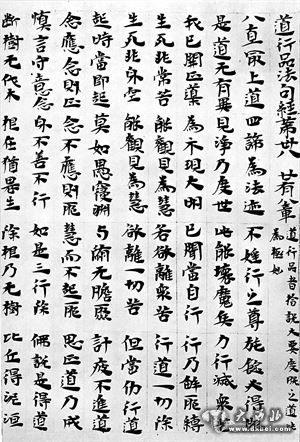 道行品法句經苐卅八 廿有八章 道行品者旨說大要度脫之道此為極妙
八直最上道 四諦為法迹 不婬行之尊 施燈得眼
是道无有異 見淨乃度世 此能壞魔兵 力行滅耶苦
我已開正道 為示現大明 已聞當自行 行乃解耶縛
生死非常苦 能觀見為慧 若欲離衆苦 行道一切除
生死非身空 能觀見為慧 欲離一切苦 但當勤行道
起時當即起 莫如愚覆淵 与无瞻聚 計疲不進道
念應念則正 念不應則耶 慧而不起耶 思正道乃成
慎言守意念 身不善不行 如是三行除 佛說是得道
斷樹无伐本 根在猶復生 除根乃无樹 比丘得泥洹
www.dkbei.com